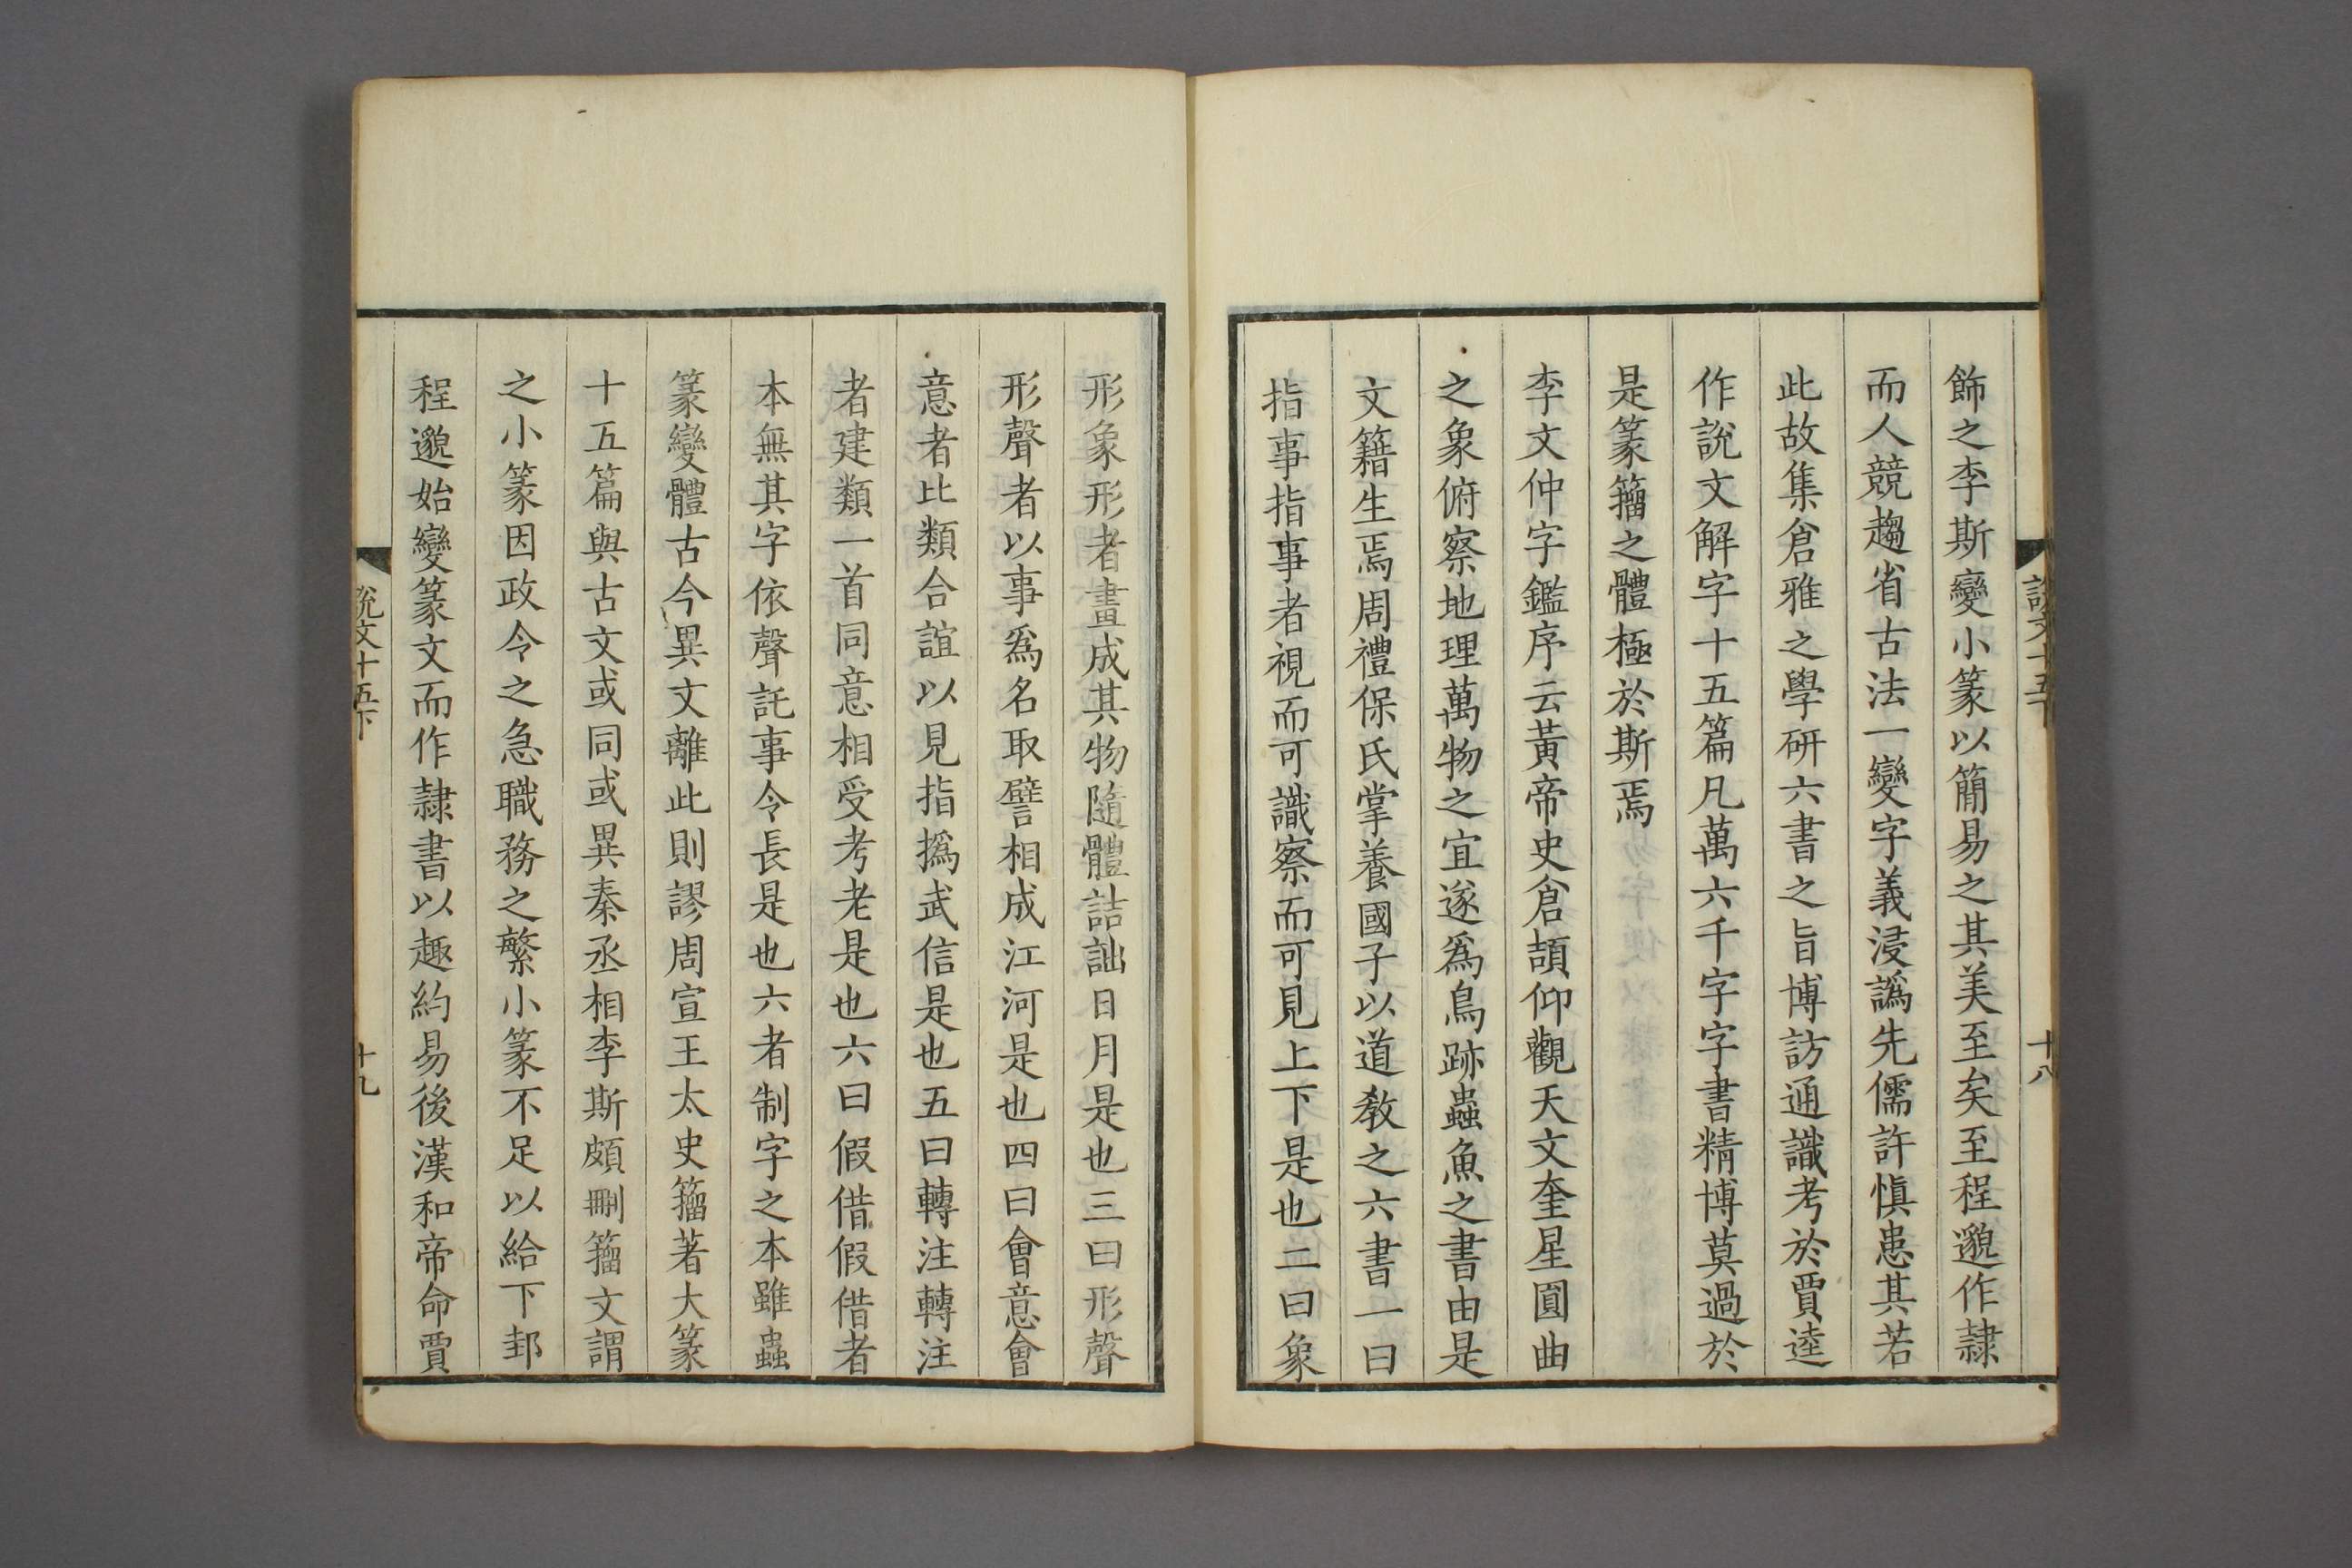 飾之李斯變小篆以簡易之其美至矣至程邈作隷
而人競趨省古法一變字義浸譌先儒許愼患其若
此故集倉雅之學研六書之旨博訪通識考於賈逵
作說文解字十五篇凡萬六千字字書精博莫過於
是篆籀之體極於斯焉
李文仲字鑑序云黃帝史倉頡仰觀天文奎星圓曲
之象俯察地理萬物之宜遂爲鳥跡蟲魚之書由是
文籍生焉周禮保氏掌養國子以道敎之六書一曰
指事指事者視而可識察而可見上下是也二曰象
說文十五下
十八
形象形者畫成其物隨體詰詘日月是也三曰形聲
形聲者以事爲名取譬相成江河是也四曰會意會
意者比類合誼以見指撝武信是也五曰轉注轉注
者建類一首同意相受考老是也六曰假借假借者
本無其字依聲託事令長是也六者制字之本雖蟲
篆變體古今異文離此則謬周宣王太史籀著大篆
十五篇與古文或同或異秦丞相李斯頗刪籀文謂
之小篆因政令之急職務之繁小篆不足以給下邽
程邈始變篆文而作隷書以趣約易後漢和帝命賈
說文十五下
十九